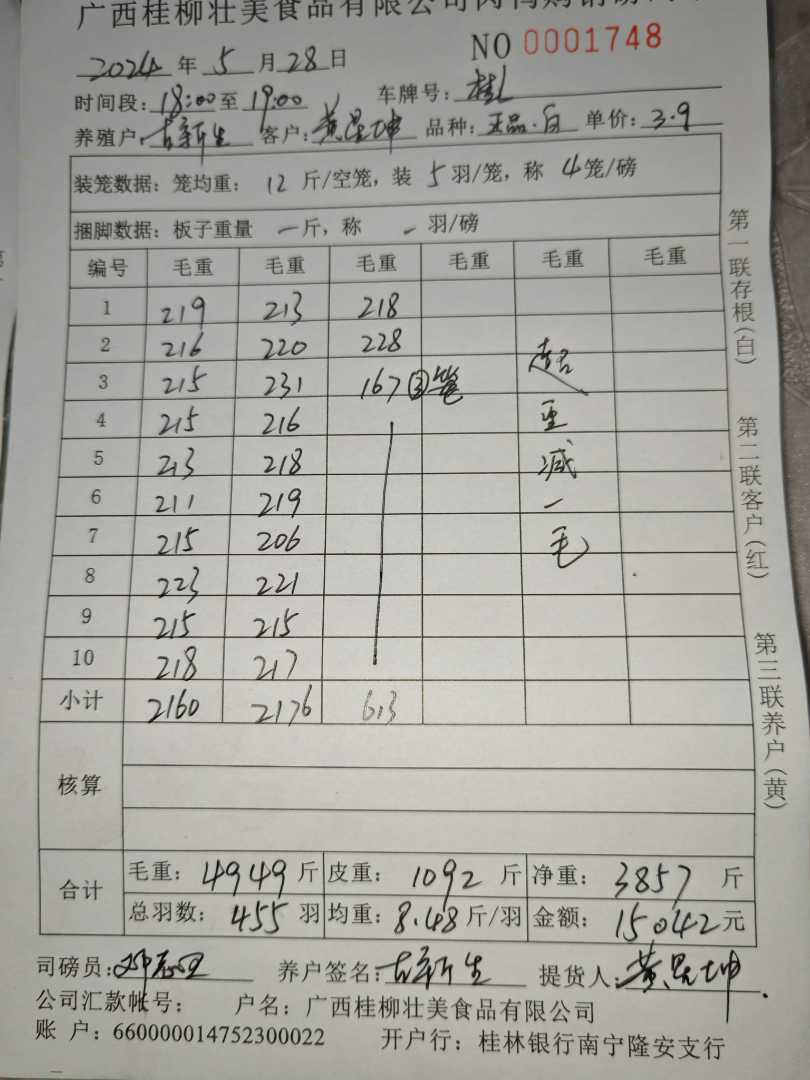 广西桂柳壮美食品有限公司肉鸭购销磅
NO 0001748
2024 年 5 月 28 日
时间段: 18:00 至 19:00 车牌号: 桂
养殖户: 古新生 客户: 黄昆坤 品种: 正品·白 单价: 3.9
装笼数据: 笼均重: 12 斤/空笼, 装 5 羽/笼, 称 4 笼/磅
捆脚数据: 板子重量 一 斤, 称 - 羽/磅
编号 毛重 毛重 毛重 毛重 毛重 毛重
1 219 213 218
2 216 220 228
3 215 231 167 ③笼 超
4 215 216 重
5 213 218 减
6 211 219 一
7 215 206 毛
8 223 221
9 215 215
10 218 217
小计 2160 2176 613
核算
合计 毛重: 4949 斤 皮重: 1092 斤 净重: 3857 斤
总羽数: 455 羽 均重: 8.48 斤/羽 金额: 15042 元
司磅员: 养户签名: 古新生 提货人: 黄昆坤
公司汇款帐号: 户名: 广西桂柳壮美食品有限公司
账 户: 660000014752300022 开户行: 桂林银行南宁隆安支行
第一联存根(白)
第二联客户(红)
第三联养户(黄)